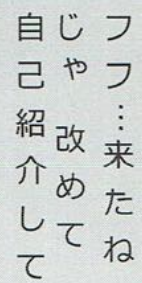 フフ…来たね
じゃ 改めて
自己紹介して